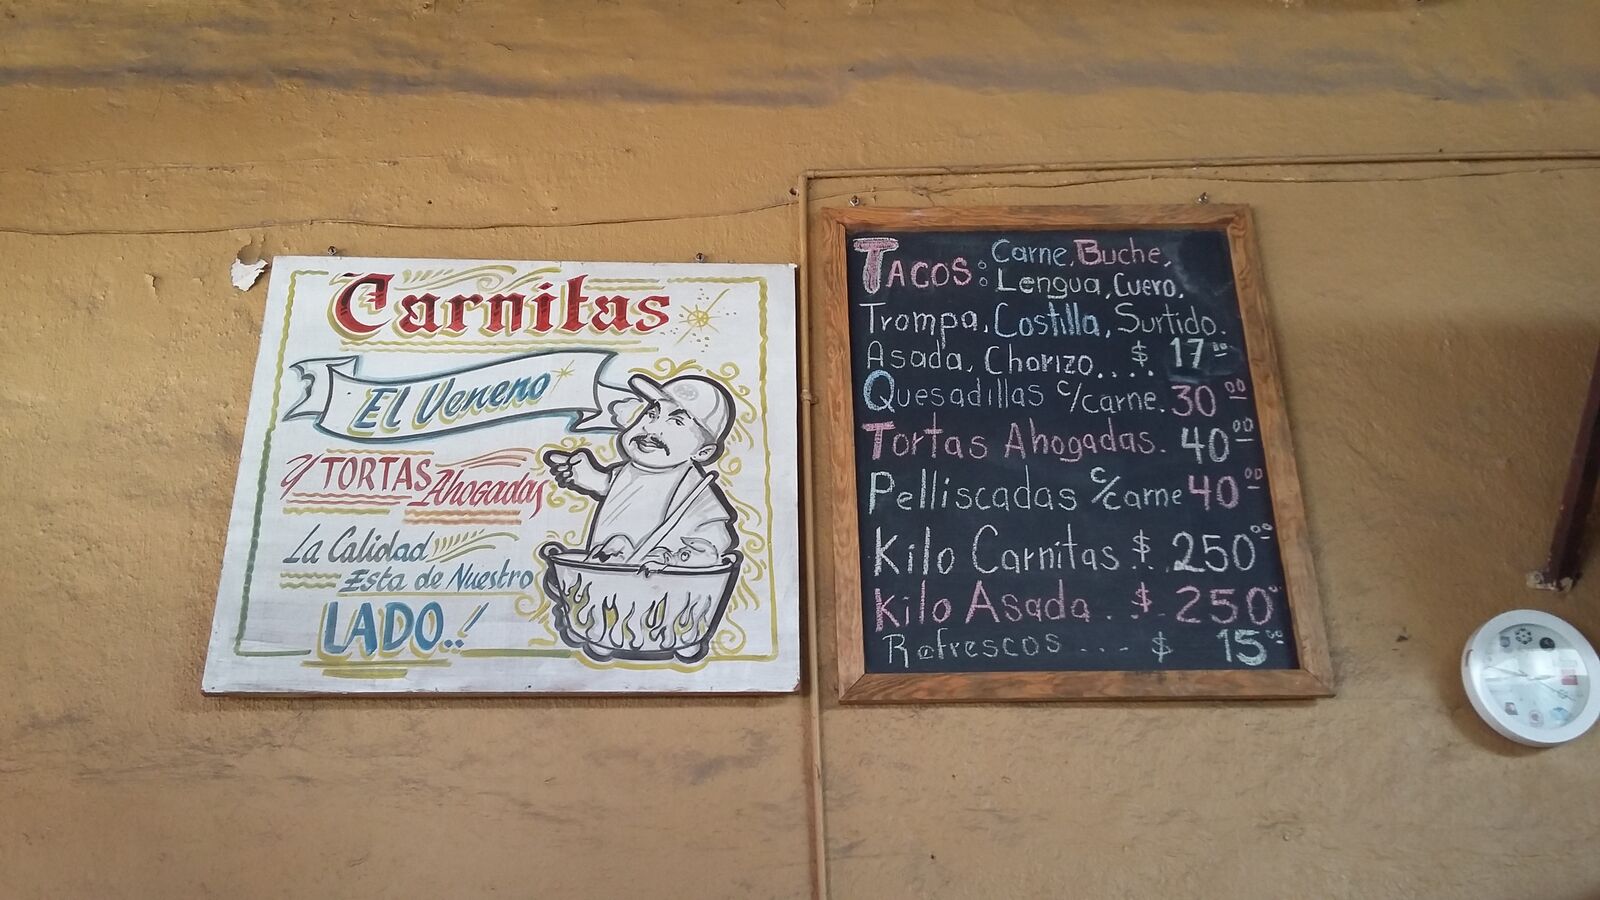 Carnitas
El Veneno
Y TORTAS Ahogadas
La Calidad
Esta de Nuestro
LADO..!
TACOS: Carne, Buche,
Lengua, Cuero,
Trompa, Costilla, Surtido.
Asada, Chorizo.... $ 17 00
Quesadillas c/carne. 30 00
Tortas Ahogadas. 40 00
Pelliscadas c/carne 40 00
Kilo Carnitas $. 250 00
Kilo Asada.. $. 250 00
Refrescos... $ 15 00